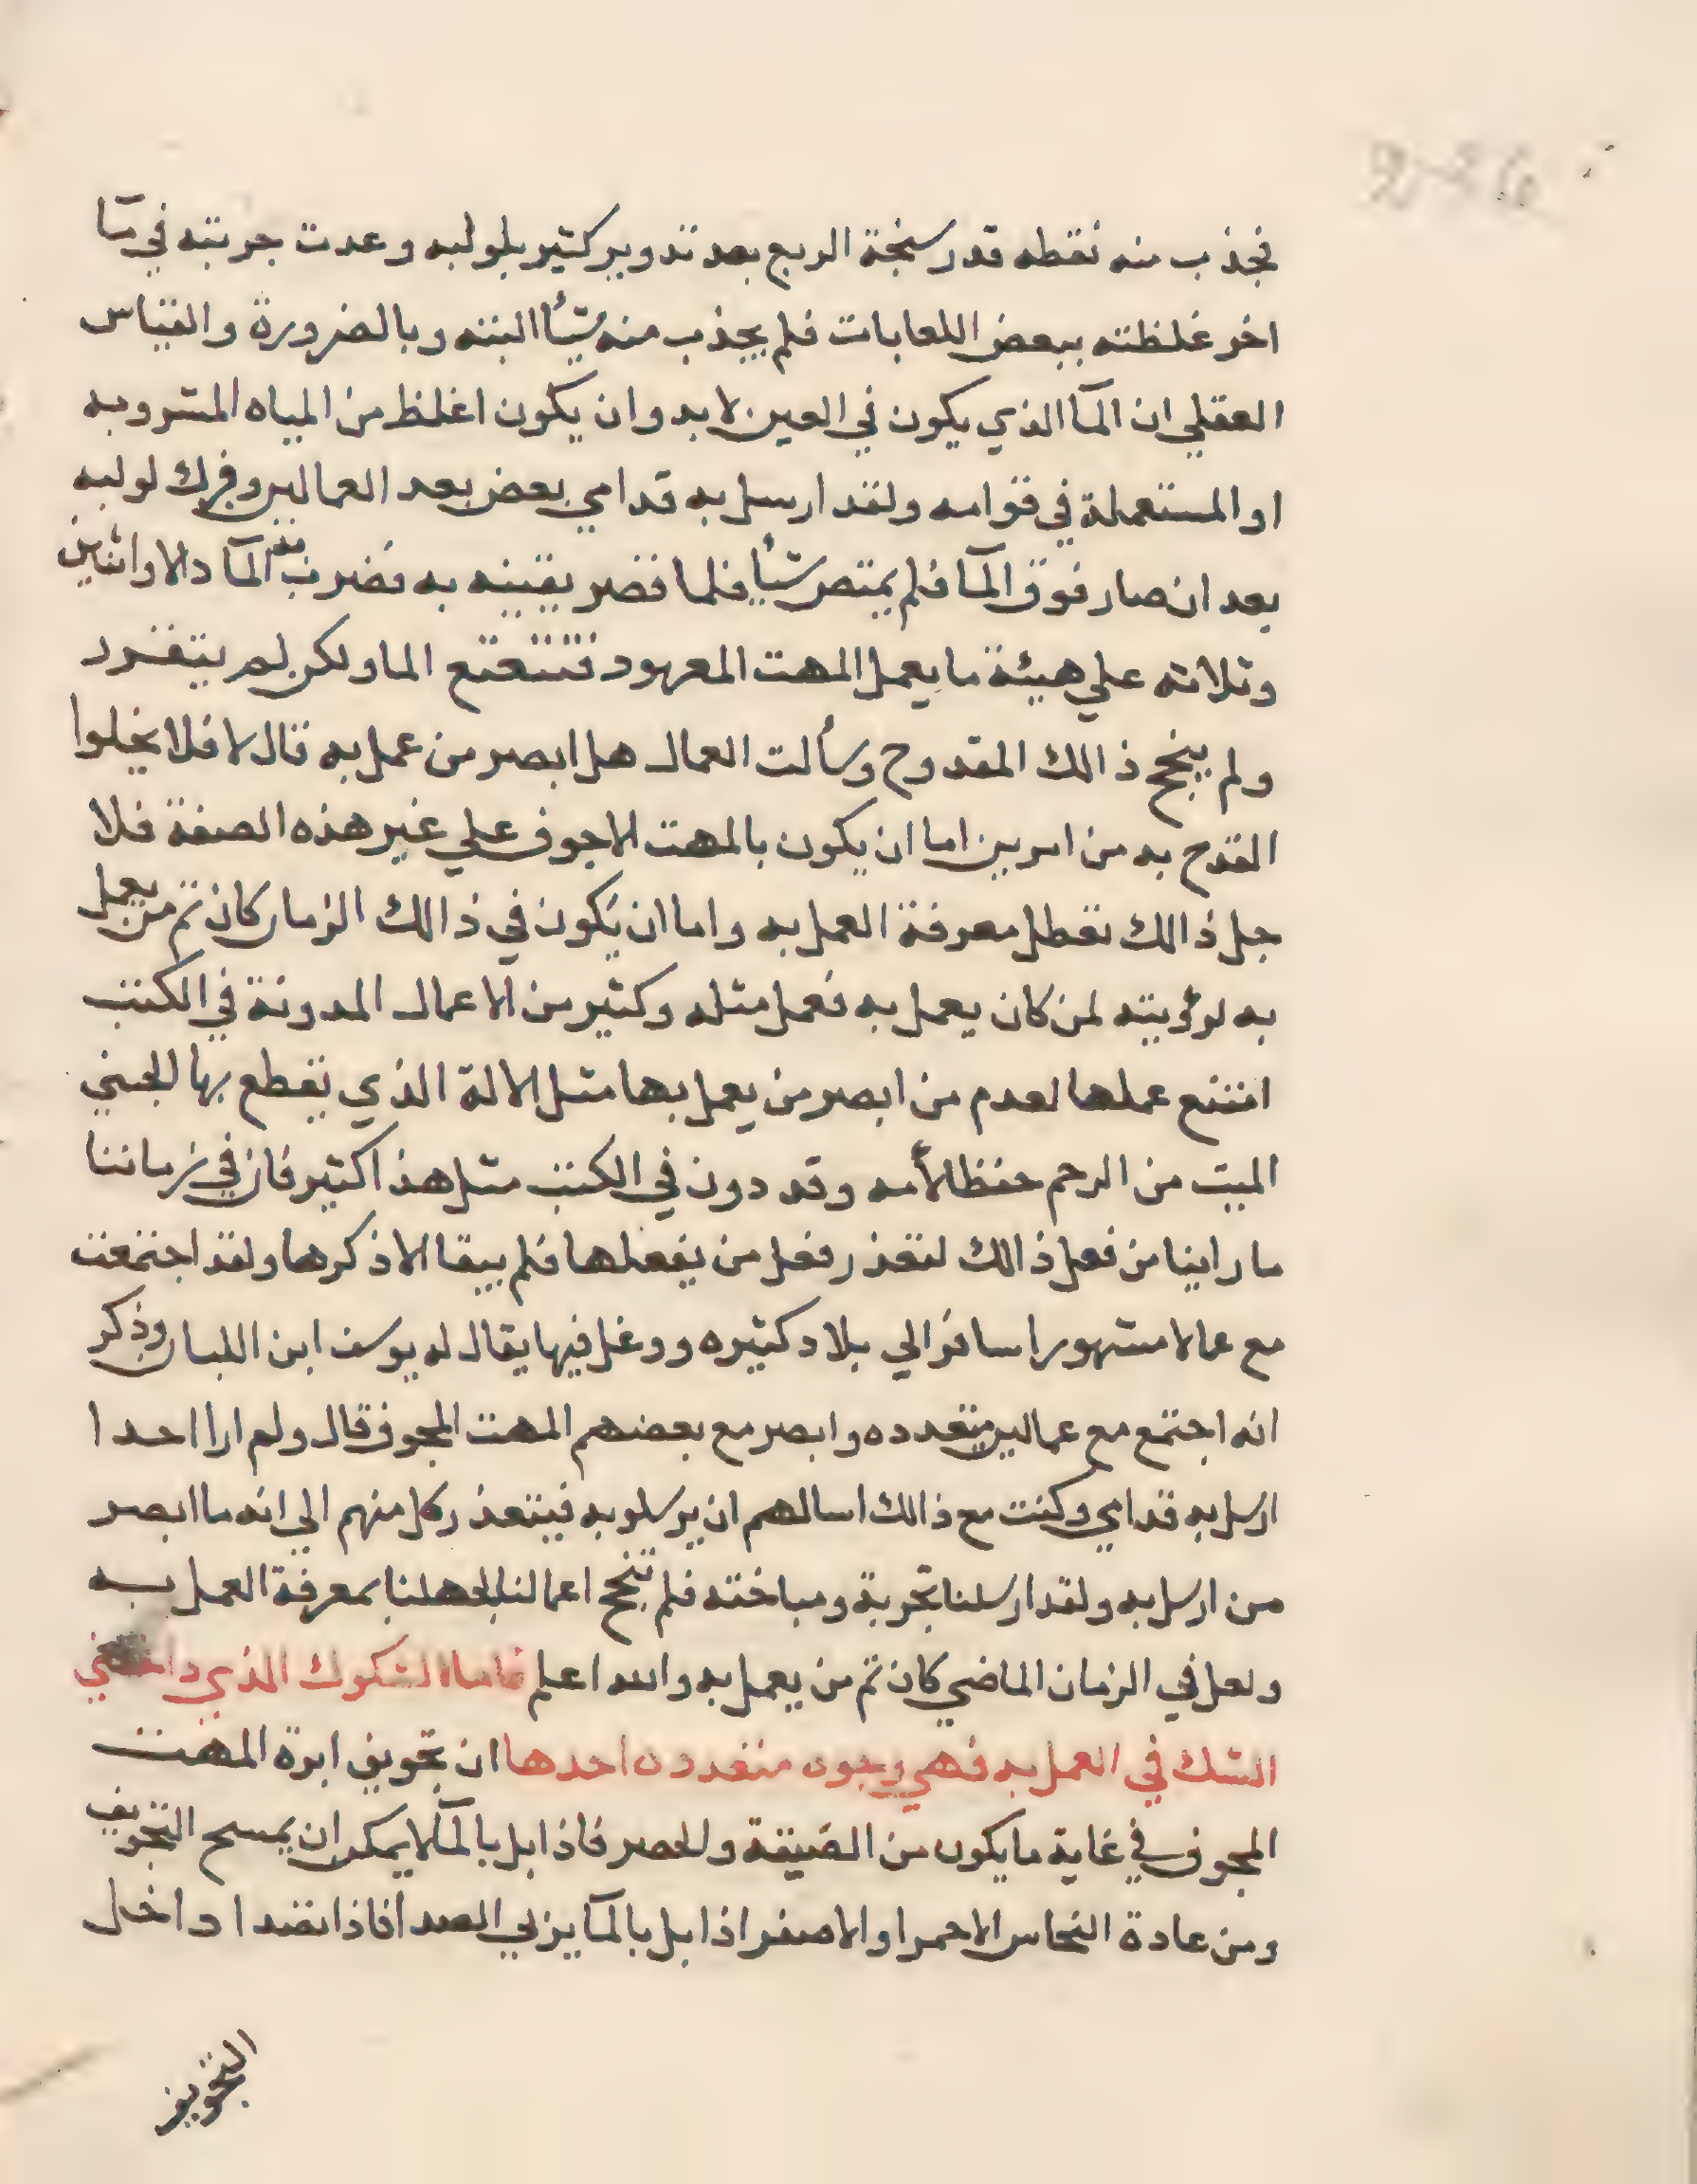 فجذب منه نقطه قدر سنجة الربع بعد تدوير كثير بلولبه وعدت جربته في مآ
اخر غلظته ببعض اللعابات فلم يجذب منه شيأ البته وبالضرورة والقياس
العقلي ان المآ الذي يكون في العين لا بد وان يكون اغلظ من المياه المشروبه
او المستعملة في قوامه ولقد ارسل به قدامي بعض بعد العمالين وفرك لولبه
بعد ان صار فوق المآ فلم يمتص شيأ فلما قصر يقينه به نضرب المآ دالا واثنين
وثلاثه علي هيئة ما يعمل المهت المعهود تتتعتع الما ولكن لم يتفرد
ولم ينجح ذالك المقدوح وسألت العمال هل ابصر من عمل به قال لا فلا يخلوا
القدح به من امرين اما ان يكون بالمهت الاجوف علي غير هذه الصفة فلا
جل ذالك تعطل معرفة العمل به واما ان يكون في ذالك الزمان كان ثم من يعمل
به لرؤيته لمن كان يعمل به فعمل مثله وكثير من الاعمال المدونة في الكتب
امتنع عملها لعدم من ابصر من يعمل بها مثل الالة الذي يقطع بها الجنين
الميت من الرحم حفظا لأمه وقد دون في الكتب مثل هذا كثير فان في زماننا
ما راينا من فعل ذالك لتعذر فعل من يفعلها فلم يبقا الا ذكرها ولقد اجتمعت
مع عمالا مشهورا سافر الي بلاد كثيره ووغل فيها يقال له يوسف ابن اللبان وذكر
انه اجتمع مع عمالين متعدده وابصر مع بعضهم المهت المجوف قال ولم ارا احدا
ارسل به قدامي وكنت مع ذالك اسالهم ان يرسلو به فيتعذر كل منهم الي انه ما ابصر
من ارسل به ولقد ارسلنا تجربة ومباختة فلم تنجح اعمالنا لجهلنا بمعرفة العمل به
ولعل في الزمان الماضي كان ثم من يعمل به والله اعلم فاما الشكوك الذي داخلني
الشك في العمل به فهي وجوه متعدده احدها ان تجويف ابرة المهت
المجوف في غاية ما يكون من الضيقة والحصر فاذا بل بالمآ لا يمكن ان يمسح التجويف
ومن عادة النحاس الاحمر او الاصفر اذا بل بالمآ يزلي الصدأ فاذا نفدا داخل
التجويف